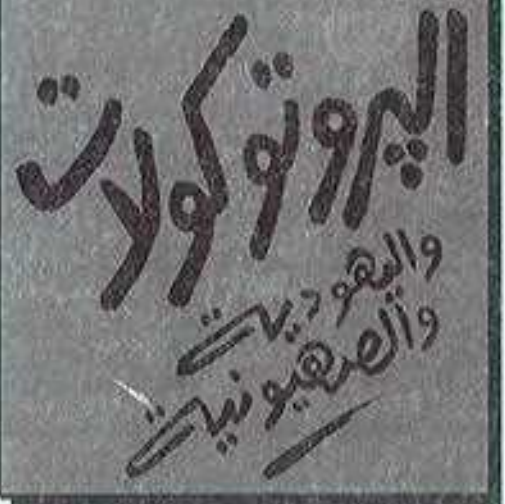 البروتوكولات
واليهودية
والصهيونية